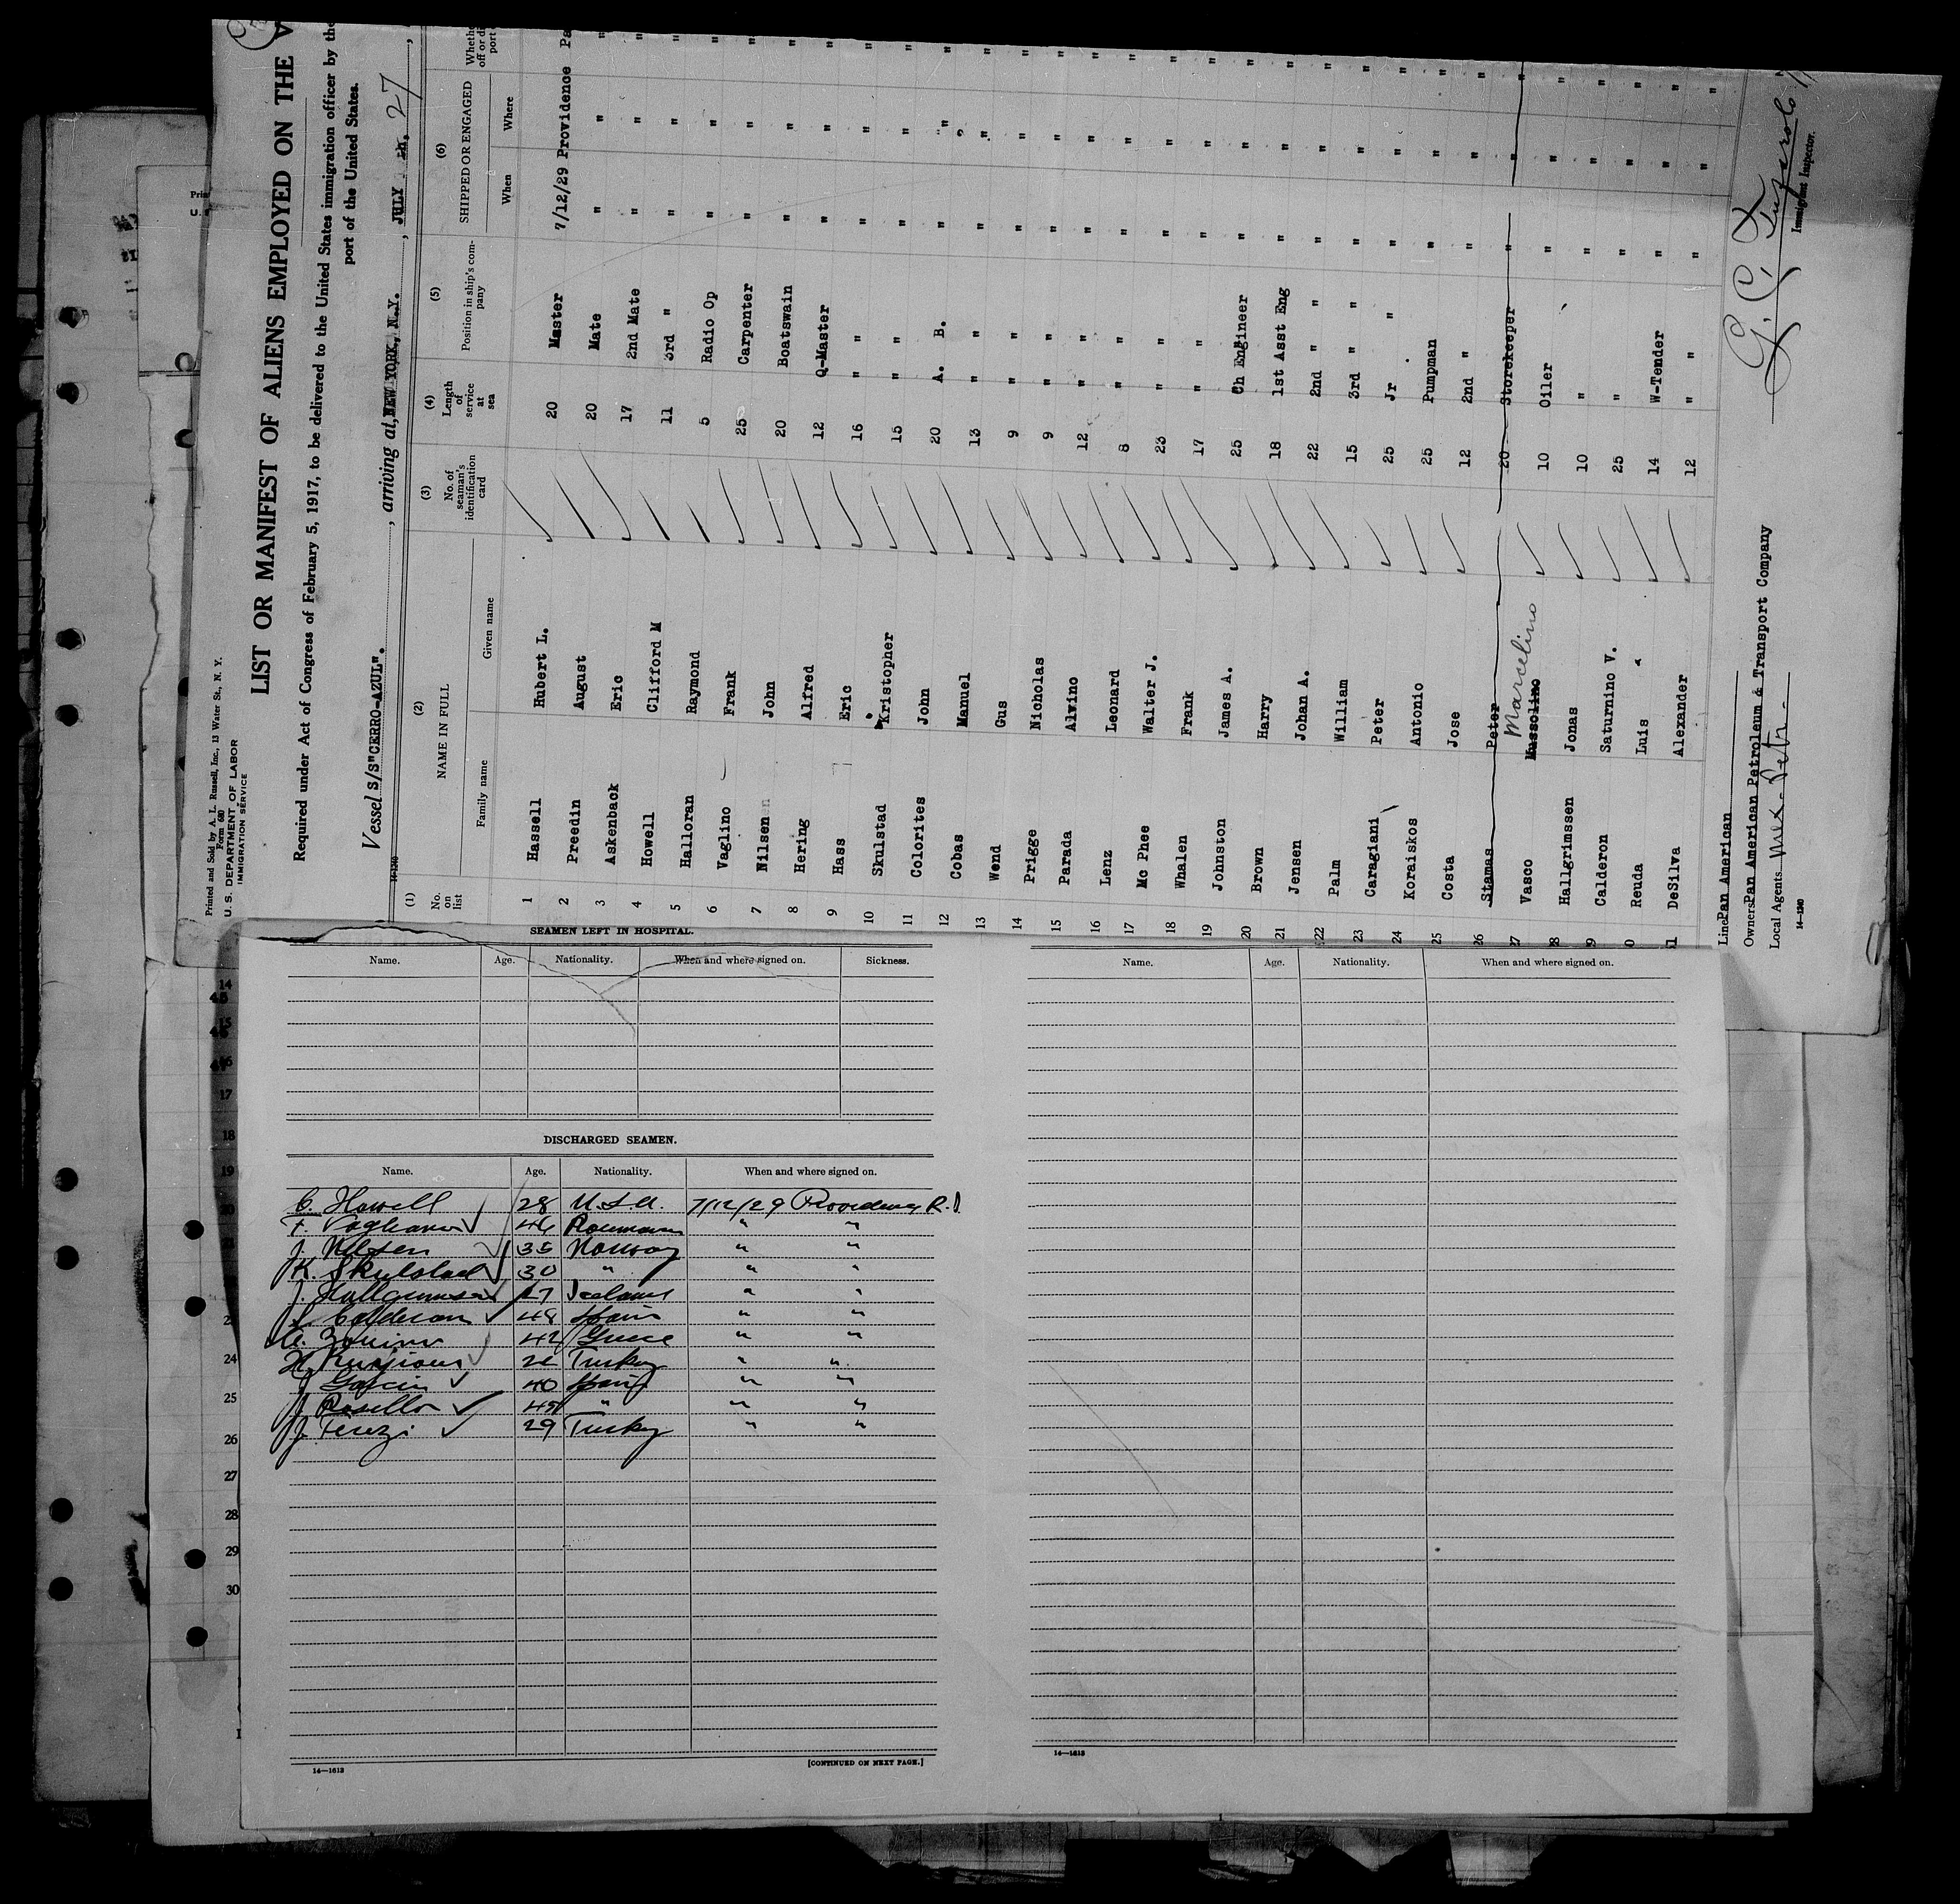 Printed and Sold by A. L. Russell, Inc., 13 Water St., N. Y.
Form 680
U. S. DEPARTMENT OF LABOR
IMMIGRATION SERVICE
LIST OR MANIFEST OF ALIENS EMPLOYED ON THE
Required under Act of Congress of February 5, 1917, to be delivered to the United States immigration officer by the
port of the United States.
Vessel S/S"CERRO-AZUL". , arriving at, NEW YORK, N.Y. , JULY 27
14-1240
(1) (2) (3) (4) (5) (6)
No. on list NAME IN FULL No. of seaman's identification card Length of service at sea Position in ship's company SHIPPED OR ENGAGED
Family name Given name When Where
1 Hassell Hubert L. 20 Master 7/12/29 Providence
2 Preedin August 20 Mate " "
3 Askenback Eric 17 2nd Mate " "
4 Howell Clifford M 11 3rd " " "
5 Halloran Raymond 5 Radio Op " "
6 Vaglino Frank 25 Carpenter " "
7 Nilsen John 20 Boatswain " "
8 Hering Alfred 12 Q-Master " "
9 Hass Eric 16 " " " "
10 Skulstad Kristopher 15 " " " "
11 Colorites John 20 A. B. " "
12 Cobas Manuel 13 " " " "
13 Wend Gus 9 " " " "
14 Prigge Nicholas 9 " " " "
15 Parada Alvino 12 " " " "
16 Lenz Leonard 8 " " " "
17 Mc Phee Walter J. 23 " " " "
18 Whalen Frank 17 " " " "
19 Johnston James A. 25 Ch Engineer " "
20 Brown Harry 18 1st Asst Eng " "
21 Jensen Johan A. 22 2nd " " " "
22 Palm William 15 3rd " " " "
23 Caragiani Peter 25 Jr " " "
24 Koraiskos Antonio 25 Pumpman " "
25 Costa Jose 12 2nd " " "
26 Stamas Peter 20 Storekeeper " "
27 Vasco Mussolino Marcelino 10 Oiler " "
28 Hallgrimssen Jonas 10 " " "
29 Calderon Saturnino V. 25 " " "
30 Reuda Luis 14 W-Tender " "
31 DeSilva Alexander 12 " " " "
Line Pan American
Owners Pan American Petroleum & Transport Company
Local Agents Mex-Petr-
14-1240
Immigrant Inspector.
SEAMEN LEFT IN HOSPITAL.
Name. Age. Nationality. When and where signed on. Sickness.
DISCHARGED SEAMEN.
Name. Age. Nationality. When and where signed on.
C. Howell 28 U.S.A. 7/12/29 Providence R.I.
F. 46 " "
J. Nilsen 35 Norway " "
K. Skulstad 30 " " "
J. Hallgrimssen 27 Iceland " "
S. Calderon 48 Spain " "
42 Greece " "
26 Turkey " "
J. Garcia 40 Spain " "
J. Rosello 45 " " "
J. Terezi 29 Turkey " "
14—1613
[CONTINUED ON NEXT PAGE.]
Name. Age. Nationality. When and where signed on.
14—1613
14
15
16
17
18
19
20
24
25
26
27
28
29
30